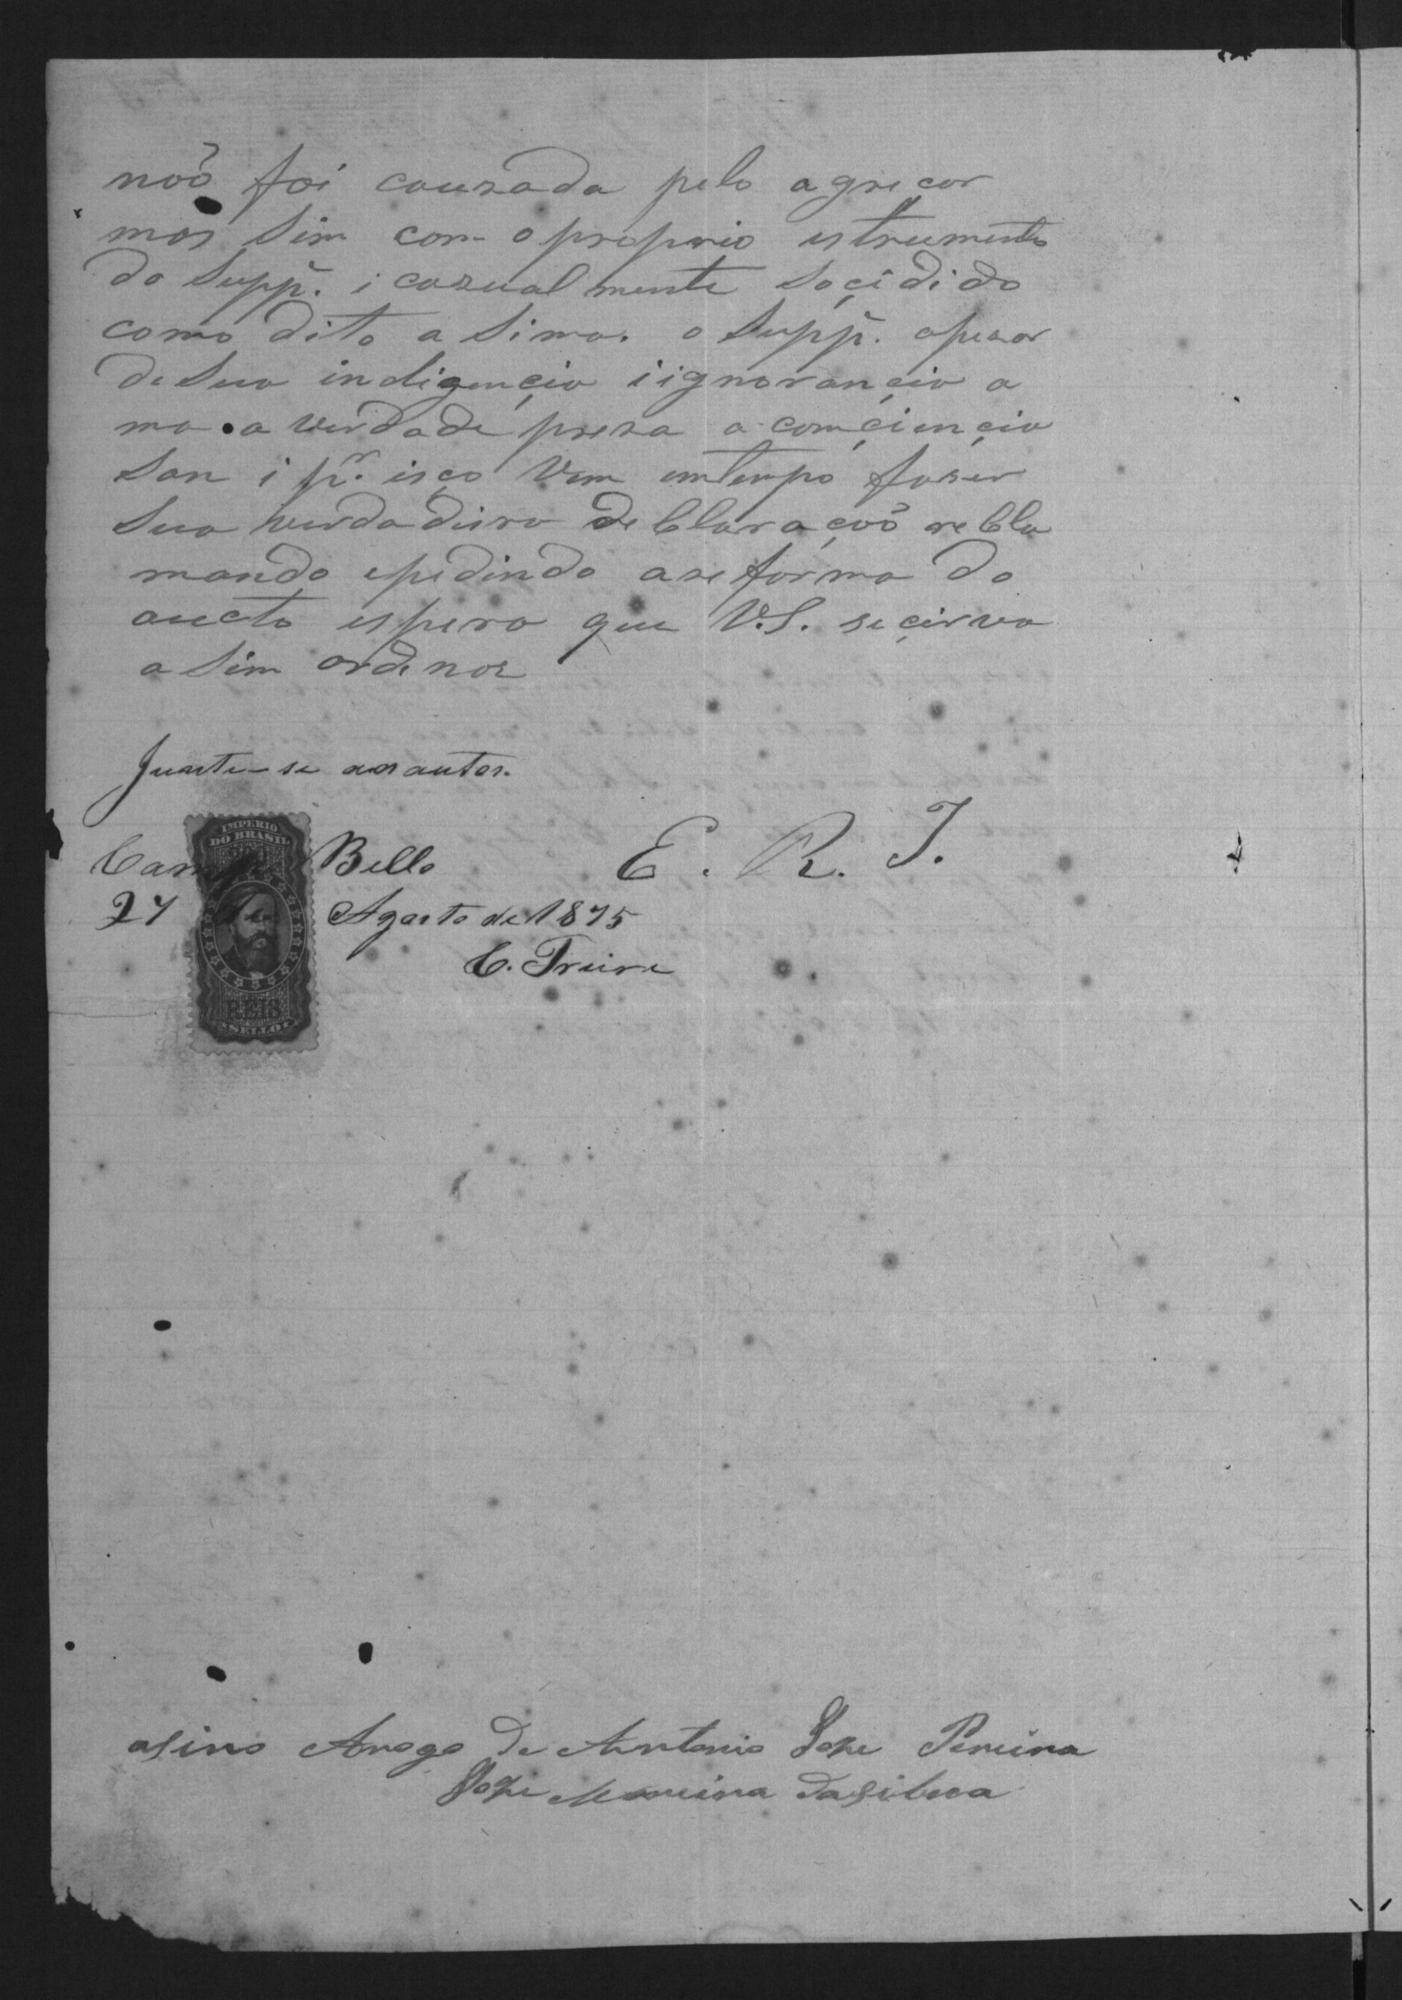 noõ foi couzada pelo agreçor
mas Sim com o proprio estrumento
do Supp.e i cazual mente Soçidido
como dito a Sima. o Supp.e apezar
de Sua indigençia i ignorançia a
ma a verdade preza a comçiençia
San i p.r isço Vem emtempo fazer
Sua verdadeira deCllaraçoõ reClla
mando epedindo areforma do
aucto espera que V.S. seçirva
a Sim ordenar
Junte-se aos autos.
E. R. J.
Campo Bello
27 de Agosto de 1875
C. Freire
IMPERIO
DO BRASIL
REIS
SELLO
asino Arogo de Antonio Joze Pereira
Joze Moreira dasilva